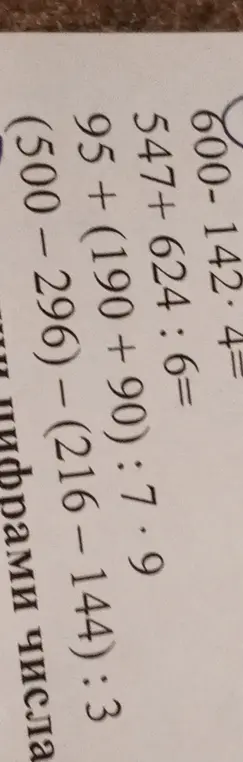 600- 142· 4=
547+ 624 : 6=
95 + (190 + 90) : 7 · 9
(500 – 296) – (216 – 144) : 3
цифрами числа